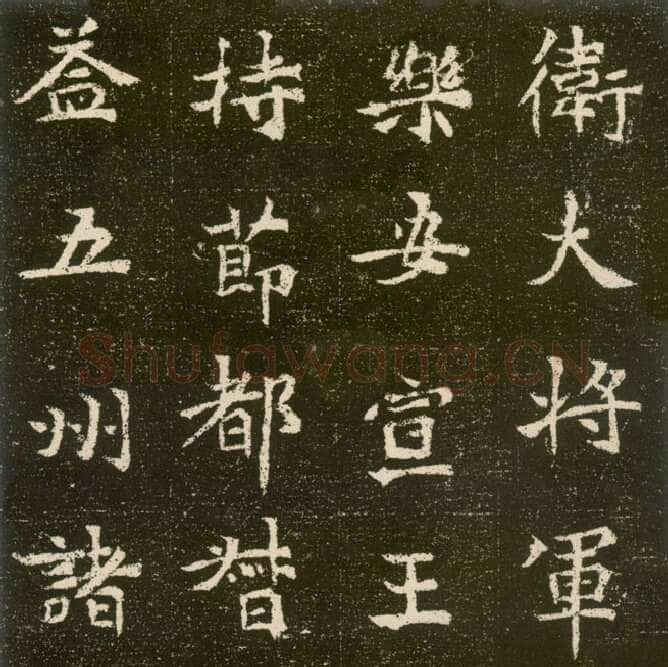 衛大将軍
樂安宣王
持莭都督
益五州諸
Shufawang.CN